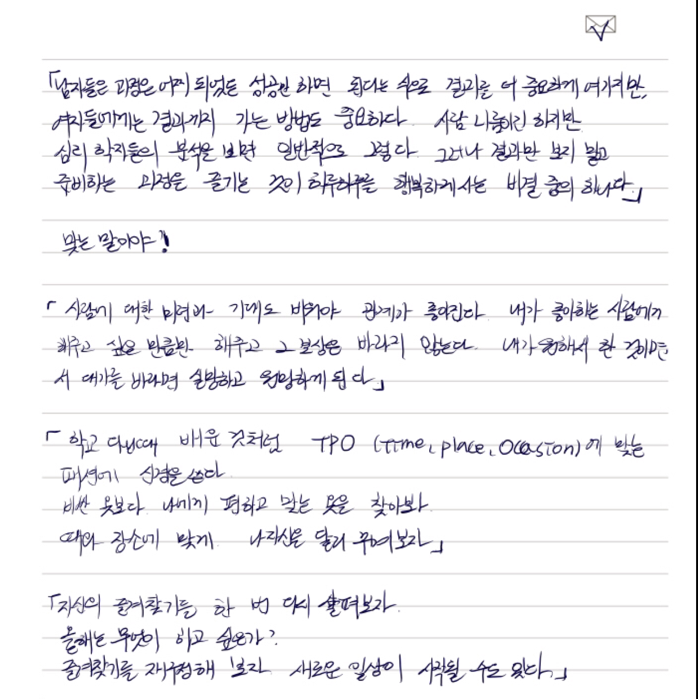 「남자들은 과정은 어찌 되었든 성공만 하면 된다는 식으로 결과를 더 중요하게 여기지만,
여자들에게는 결과까지 가는 방법도 중요하다. 사람 나름이긴 하지만
심리 학자들의 분석을 보면 일반적으로 그렇다. 그러나 결과만 보지 말고
준비하는 과정을 즐기는 것이 하루하루를 행복하게 사는 비결 중의 하나다.」
맞는 말이야!
「사람에 대한 미련과 기대도 비워야 관계가 좋아진다. 내가 좋아하는 사람에게
해주고 싶은 만큼만 해주고 그 보상은 바라지 않는다. 내가 원해서 한 것이면
서 대가를 바라며 실망하고 원망하게 된다」
「학교 다닐때 배운 것처럼 TPO (time, place, occasion)에 맞는
패션에 신경을 쓴다.
비싼 옷보다 나에게 편하고 맞는 옷을 찾아보자.
때와 장소에 맞게 나자신을 달리 꾸며보자」
「자신의 즐겨찾기를 한 번 다시 살펴보자.
올해는 무엇이 하고 싶은가?
즐겨찾기를 재구성해 보자 새로운 일상이 시작될 수도 있다.」